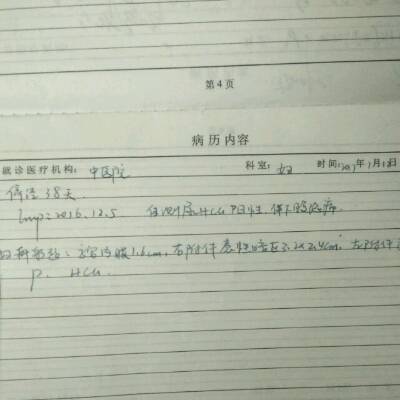 第4页
病历内容
就诊医疗机构: 中医院 科室: 妇 时间: 2017年1月12日
停经38天
Lmp: 2016.12.5 自测尿HCG阳性, 伴下腹隐痛
妇科彩超: 子宫内膜1.6cm, 右附件囊性暗区3.2x2.4cm, 左附件
P. HCG